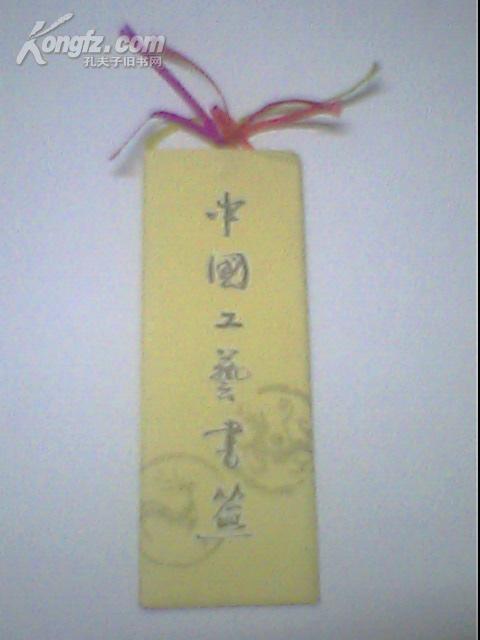 Kongfz.com
孔夫子旧书网
中國工藝書簽